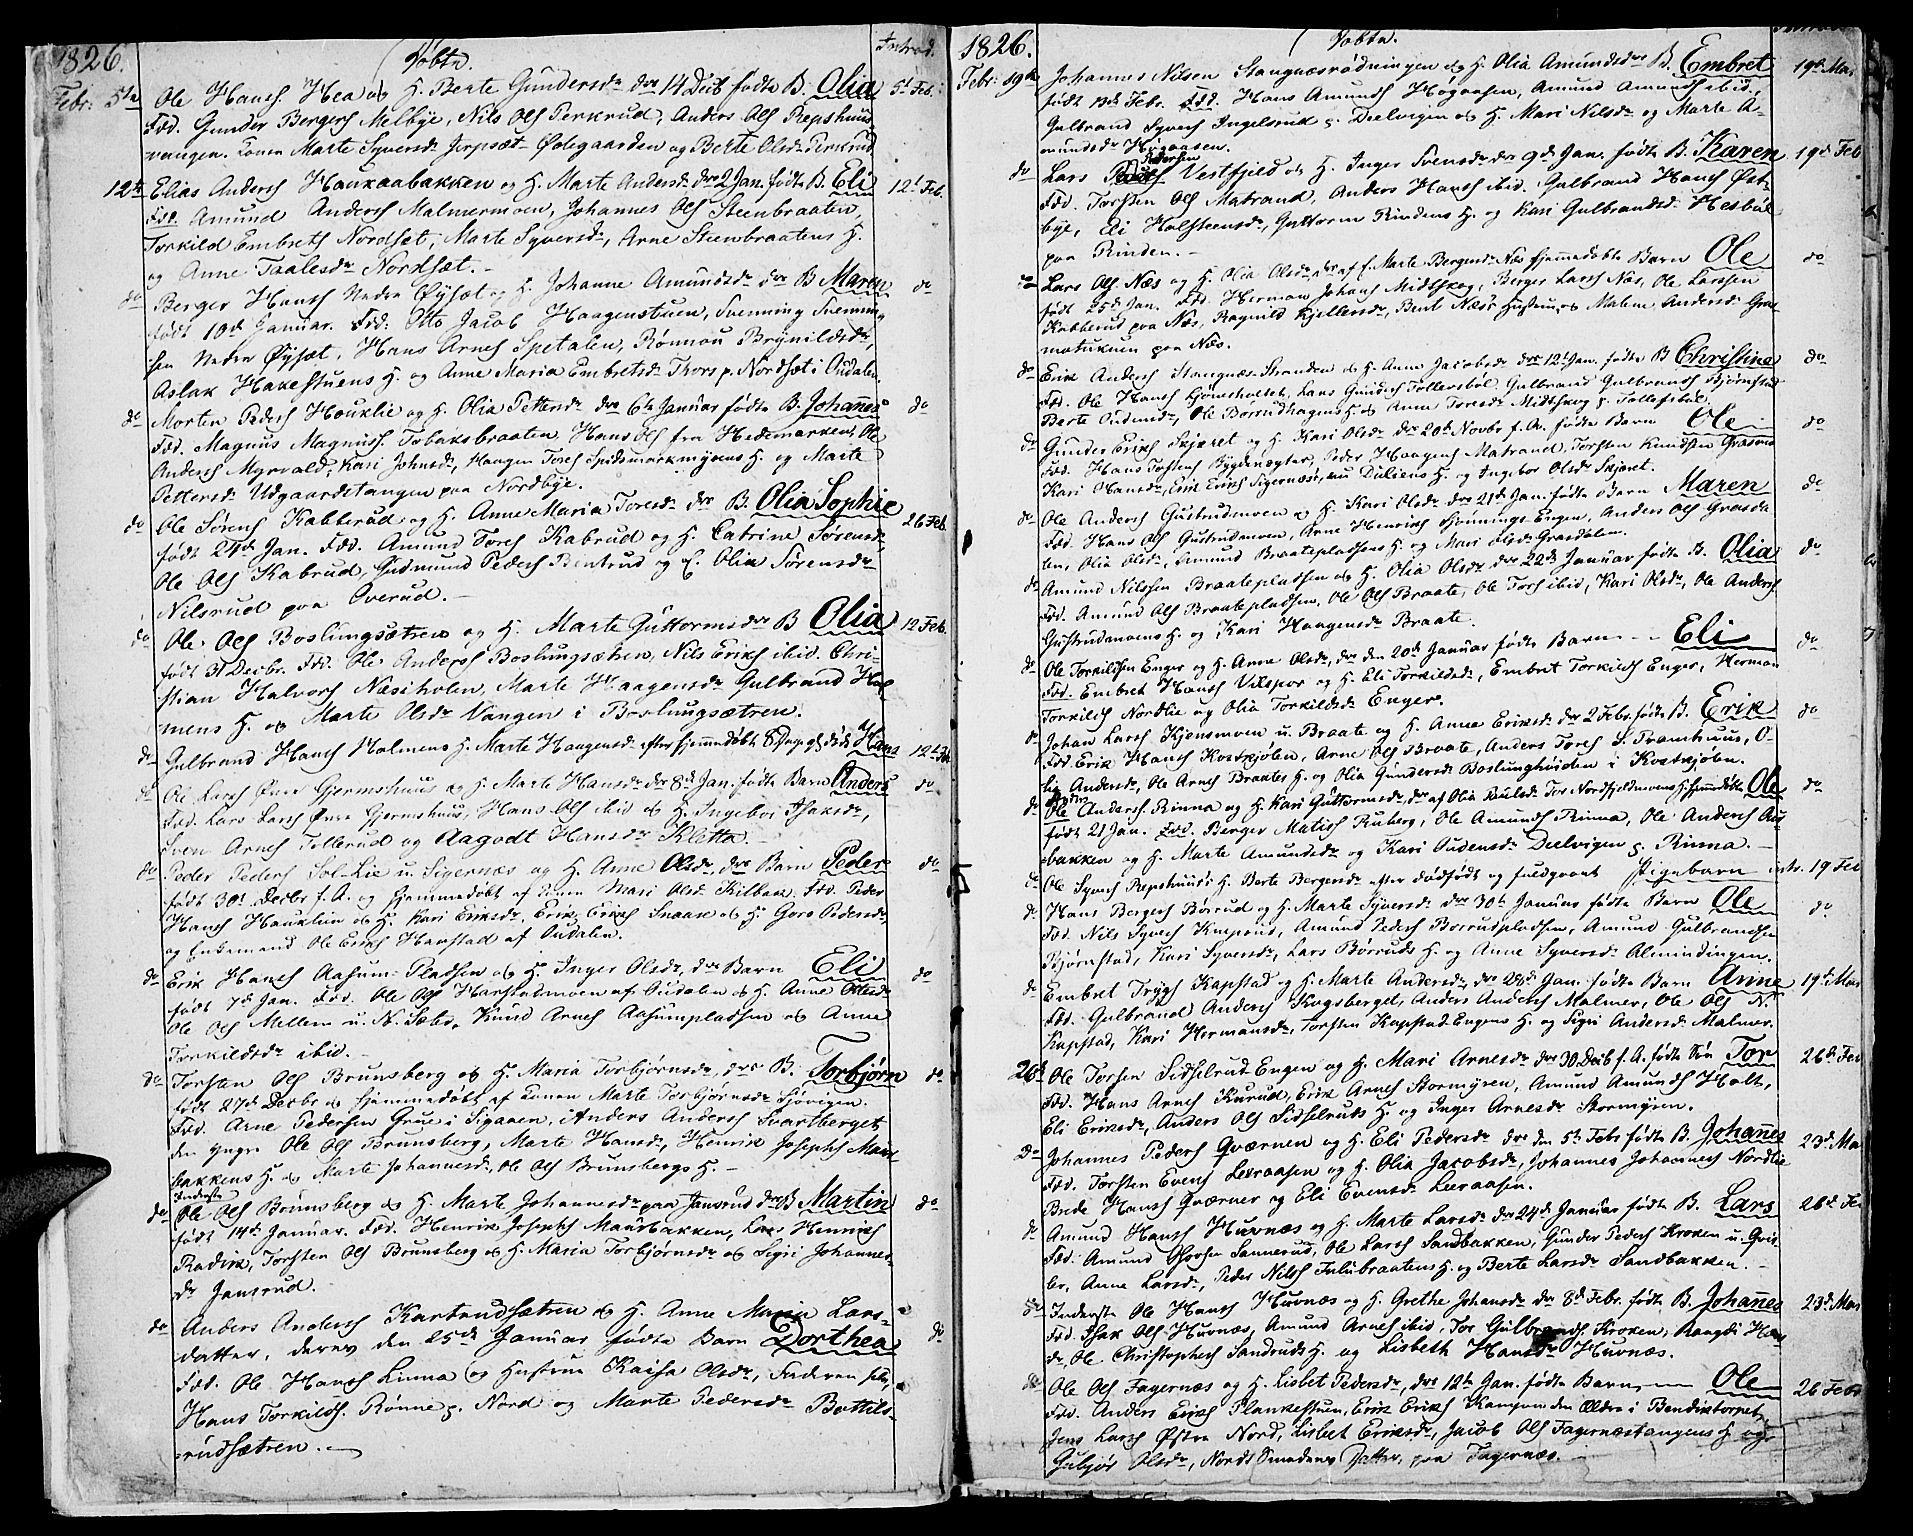 1826. Døbte. Introd.
Febr: 5te Ole Hansen Hea og H. Berte Gundersdr dere 14 Decb fødte B. Olia 5t Feb.
Fad. Gunder Bergers Melbye, Nils Ols Perkrud, Anders Ols Repshuus
vangen. Konen Marte Syversdr Jerpsæt Ødegaarden og Berte Olsdr Perkrud
12te Elias Anders Haukaabakken og H. Marte Andersdr dere 2 Jan. fødte B. Eli 12t Feb.
Fad. Amund Anders Malmermoen, Johannes Ols Steenbraaten,
Torkild Embrets Nordset, Marte Syversdr, Arne Steenbraatens H.
og Anne Taalesdr Nordsæt.
do Berger Hans Nedre Øysæt og H. Johanne Amundsdr dere B Maren do
født 10de Januar. Fad: Otto Jacob Haagenstuen, Svenning Svenning
sen Nedre Øysæt, Hans Arnes Spetalen, Rønnou Brynildsdr,
Aslak Hakestuens H. og Anne Maria Embretsdr Thors p. Nordsæt i Oudalen.
do Morten Peders Houklie og H. Olia Pettersdr dere 6te Januar fødte B. Johanes do
Fad. Magnus Magnuss. Tobaksbraaten, Hans Ols fra Hedemarken, Ole
Anders Myrvald, Kari Johnsdr, Haagen Tores Spidsmarkmyrens H. og Marte
Pettersdr Udgaardstangen paa Nordbye.
do Ole Sørens Kabberud og H. Anne Maria Toresdr dere B. Olia Sophie 26 Feb.
født 24de Jan. Fad. Amund Tores Kabrud og H. Catrine Sørensdr
Ole Ols Kabrud, Gudmund Peders Bentrud og E. Olia Sørensdr
Nilsrud paa Overud.
do Ole Ols Boslungsætren og H. Marte Guttormsdr dere B Olia 12 Feb.
født 31 Decbr. Fad. Ole Anders Boslungsætren, Nils Eriks ibid. Chri-
stian Halvors Næsiholen, Marte Haagensdr Gulbrand Hol
mens H. og Marte Olsdr Vangen i Boslungsætren.
do Gulbrand Hans Holmens H. Marte Haagensdr efter hjemmedøbt 8 Dage gl. død S. Hans 12t Feb.
do Ole Lars Øvre Gjermshuus og H. Marte Hansdr dere 8de Jan. fødte Barn Anders do
Fad. Lars Lars Øvre Gjermshuus, Hans Ols ibid og H. Ingebor Isaksdr,
Sven Arnes Tollerud og Aagodt Hansdr Kletta.
do Peder Peders Sol-Lie u. Sigernæs og H. Anne Olsdr, dere Barn Peder do
født 30t Decbr f. A. og hjemmedøbt af Konen Mari Olsd. Kilbak. Fad. Peder
Hans Hauklien og H. Kari Eriksdr, Erik Eriks Snaare og H. Goro Pedersdr,
og Enkemand Ole Eriks Harstad af Oudalen.
do Erik Hans Aasum-Pladsen og H. Inger Olsdr, dere Barn Eli do
født 7de Jan. Fad. Ole Ols Harstadmoen af Oudalen og H. Anne Olsdr
Ole Ols Mellem u. N. Sæter, Knud Arnes Aasumpladsen og Anne
Torkildsdr ibid.
do Torsten Ols Brunsberg og H. Maria Torbjørnsdr, dere B. Torbjørn do
født 27de Decbr og hjemmedøbt af Konen Marte Torbjørnsdr Sjøvigen.
Fad. Arne Pedersen Grue i Sigaaen, Anders Anders Svartberget
den yngre Ole Ols Brunsberg, Marte Hansdr, Henrik Josephs Maur
bakkens H. og Marte Johannesdr, Ole Ols Brunsbergs H.
do Inderste Ole Ols Brunsberg og H. Marte Johannesdr paa Jansrud dere B Martin do
født 14de Januar. Fad. Henrik Josephs Maurbakken, Lars Henriks
Radirk, Torsten Ols Brunsberg og H. Maria Torbjørnsdr og Sigri Johannes-
dr Jansrud.
do Anders Anders Kartrudsætren og H. Anne Maria Lars-
datter, deres den 25de Januar fødte Barn Dorthea do
Fad. Ole Hans Linna og Hustrue Kaisa Olsdr, Faderen selv,
Hans Torkilds. Rønne p. Nord og Marte Pedersdr Bottils-
rudsætren.
1826. Døbte.
Febr: 19de Johannes Nilsen Stangnæsrødningen og H. Olia Amundsdr dere B. Embret 19de Mar
født 13de Febr. Fad. Hans Amunds Høgaasen, Amund Amunds ibid.,
Gulbrand Syvers Ingelsrud p. Deelvigen og H. Mari Nilsdr og Marte A-
mundsdr Høgaasen.
do Lars Pedersen Vestfjeld og H. Inger Svensdr dere 9de Jan. fødte B. Karen 19de Feb
Fad. Torsten Ols Matrand, Anders Hans ibid. Gulbrand Hans Øst-
bye, Eli Holsteensdr, Guttorm Rindens H. og Kari Gulbrandsdr Hesbøl
paa Rinden.
do Lars Ols Næs og H. Olia Olsdr, dere af E. Marte Bergersdr Næs hjemmedøbte Barn Ole do
født 25de Jan. Fad. Herman Johans Midtskog, Berger Lars Næs, Ole Larssen
Kabberud paa Næs, Ragnild Kjellersdr, Bent Næss Hustrue, og Malene Andersdr Gra-
matukuen paa Næs.
do Erik Anders Stangnæs-Stranden og H. Anne Jacobsdr dere 12t Jan. fødte B Christine do
Fad. Ole Hans Ljønerholtet, Lars Gunders Tollersbøl, Gulbrand Gulbrands Bjørnstad
Berte Oudensdr, Ole Borrudhagens H. og Anne Toresdr Midtskog p. Tollefsbøl.
do Gunder Eriks Skjæret og H. Kari Olsdr dere 20de Novbr f. A. fødte Barn Ole do
Fad. Hans Torstens Bygdevægter, Peder Haagens Matrand, Torsten Knudsen Grasmo
Kari Hansdr, Erik Eriks Sigernæs, nu Duliens H. og Ingebor Olsdr Skjæret.
do Ole Anders Gustrudmoen og H. Kari Olsdr dere 21de Jan. fødte Barn Maren do
Fad. Hans Ols Gustrudmoen, Arne Henriks Hønnings-Engen, Anders Ols Grasda
len, Olia Olsdr, Amund Braatepladsens H. og Mari Olsdr Grasdalen.
do Amund Nilssen Braatepladsen og H. Olia Olsdr dere 22de Januar fødte B. Olia do
Fad. Amund Ols Braatepladsen, Ole Ols Braate, Ole Tors ibid, Kari Olsdr, Ole Anders
Gustrudmoens H. og Kari Haagensdr Braate.
do Ole Torkildsen Enger og H. Anne Olsdr, dere den 20de Januar fødte Barn Eli do
Fad. Embret Hans Vikspor og H. Eli Torkildsdr, Embret Torkilds Enger, Herman
Torkilds Nordlie og Olia Torkildsdr Enger.
do Johan Lars Kjensmoen u. Braate og H. Anne Eriksdr dere 2 Febr. fødte B. Erik do
Fad. Erik Hans Kostkjølen, Arne Ols Braate, Anders Tores S. Framhuus, O-
lia Andersdr, Ole Arnes Braates H. og Olia Gundersdr Boslunghviden i Kostkjølen.
do Ole Anders. Rinna og H. Kari Guttormsdr, dere af Olia Poulsdr Tor Nordfjeldmoens H. hjemdøbte Ole do
født 21 Jan. Fad. Berger Matis Ruberg, Ole Amunds Rinna, Ole Anders Au-
bakken og H. Marte Amundsdr og Kari Oudensdr Deelvigen p. Rinna.
do Ole Syvers Repshuus's H. Berte Bergersdr efter dødfødt og fuldgaaet Pigebarn intr. 19 Feb
do Hans Bergers Børrud og H. Marte Syversdr dere 30te Januar fødte Barn Ole do
Fad. Nils Syvers Knaprud, Amund Peders Borrudpladsen, Amund Gulbrandsen
Bjørnstad, Kari Syversdr, Lars Børruds H. og Anne Syversdr Almindingen.
do Embret Trygs Kapstad og H. Marte Andersdr, dere 28de Jan. fødte Barn Anne 19de Mar
Fad. Gulbrand Anders Kagsberget, Anders Anders Malmer, Ole Ols N.
Kapstad, Kari Hermansdr, Torsten Kapstad-Engens H. og Sigri Andersdr Malmer.
26de Ole Torsen Sidselrud Engen og H. Mari Arnesdr dere 30 Decb f. A. fødte Søn Tor 26de Feb
Fad. Hans Arnes Kurud, Erik Arnes Stormyren, Amund Amunds Holt,
Eli Eriksdr, Anders Ols Sidselruds H. og Inger Arnesdr Stormyren.
Do Johannes Peders Qværnen og H. Eli Pedersdr dere den 5te Febr fødte B. Johanes 23de Mar
Fad. Torsten Evens Leeraasen og H. Olia Jacobsdr, Johannes Johannes Nordlie
Bnde Hans Qværner og Eli Evensdr Leeraasen.
do Amund Hans Huvnæs og H. Marte Larsdr dere 24de Januar fødte B. Lars 26de Feb
Fad. Amund Thorsen Sannerud, Ole Lars Sandbakken, Gunder Peders Kroken u. Qvis
ler, Anne Larsdr, Peder Nils Fulubraatens H. og Berte Larsdr Sandbakken.
do Inderste Ole Hans Huvnæs og H. Grethe Johansdr dere 8de Febr. fødte B. Johanes 23de Mar
Fad. Isak Ols Huvnæs, Amund Arnes ibid, Tor Gulbrands Kroken, Raagdi Hans
dr, Ole Christophers Sandruds H. og Lisbeth Hansdr Huvnæs.
do Ole Ols Fagernæs og H. Lisbet Pedersdr, dere 12te Jan. fødte Barn Ole 26 Feb
Fad. Anders Eriks Plankestuen, Erik Eriks Kangen den Ældre i Bendiktorpet,
Jens Lars Østre Nord, Lisbet Eriksdr, Jacob Ols Fagernæstangens H og
Gubjør Olsdr, Nords Smedens Datter, paa Fagernæs.